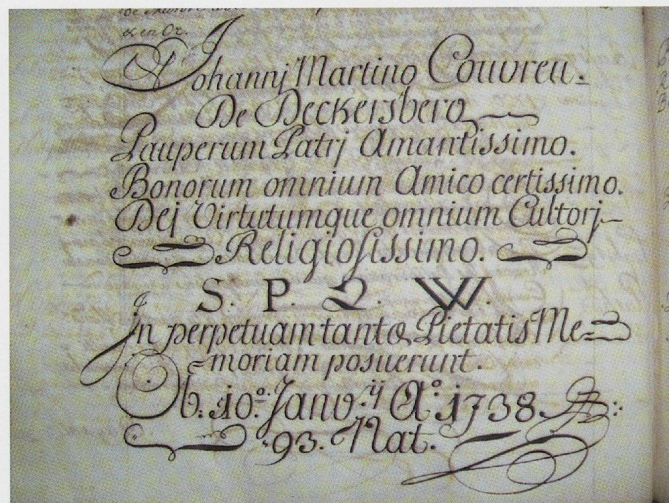 & en Or.
Johannj Martino Couvreu.
De Deckersberg
Pauperum Patrj Amantissimo.
Bonorum omnium Amico certissimo.
Dej Virtutumque omnium Cultorj
Religiosissimo.
S. P. Q. W.
In perpetuam tantæ Pietatis Me=
=moriam posuerunt.
Ob. 10.o Janv.ij Ao. 1738.
93. Nat.